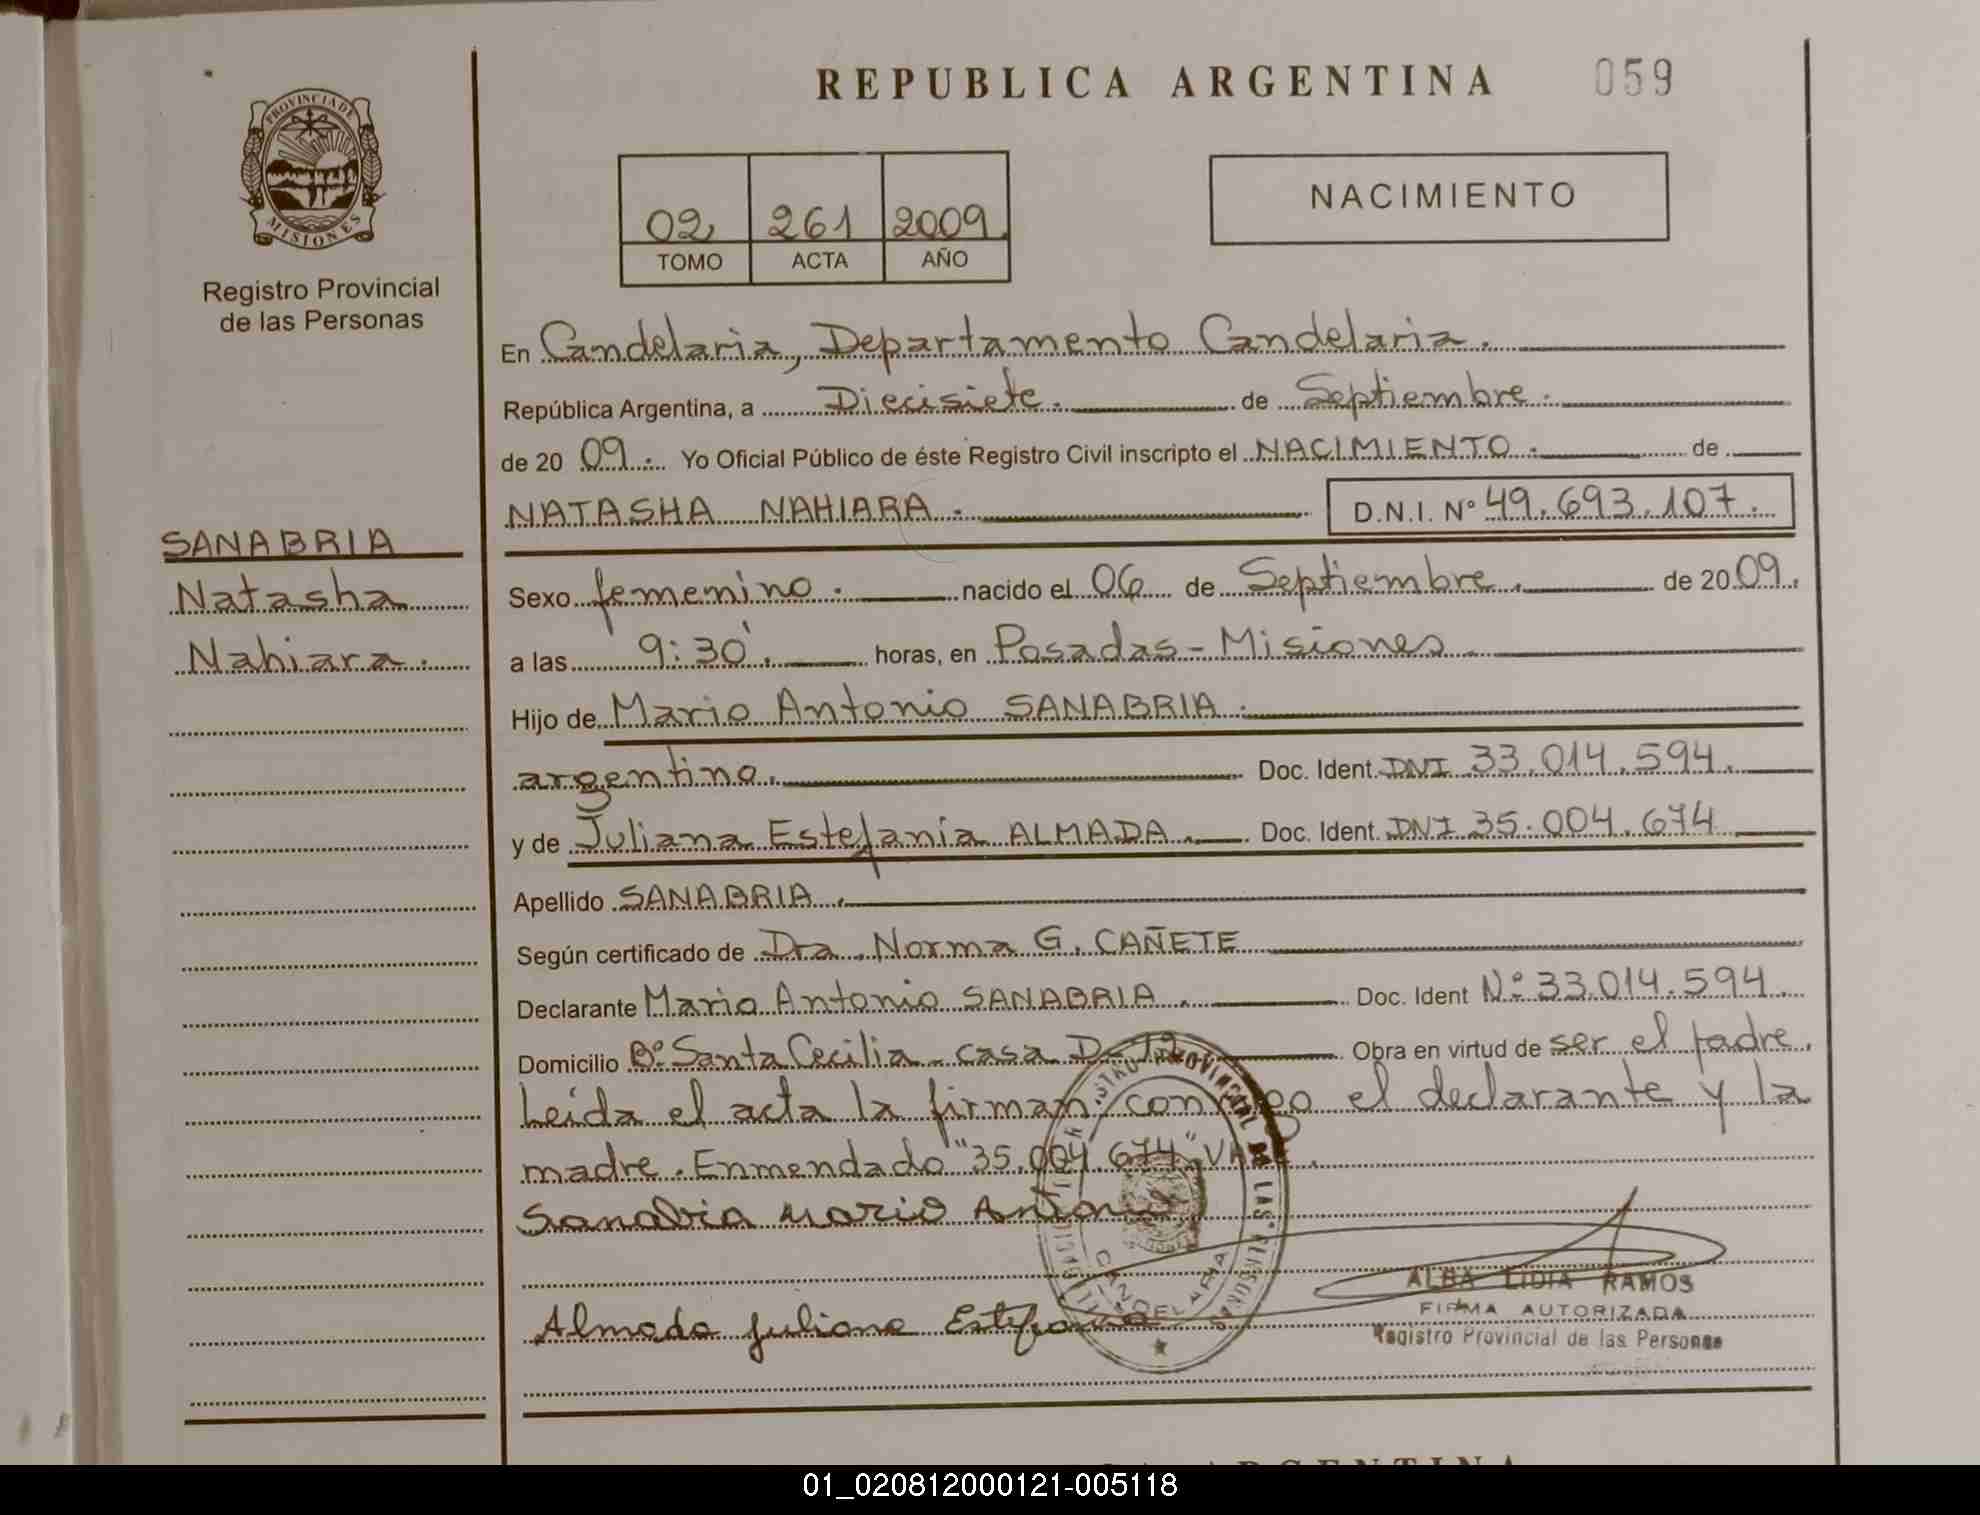 REPUBLICA ARGENTINA 059
PROVINCIA DE
MISIONES
Registro Provincial
de las Personas
02 261 2009
TOMO ACTA AÑO
NACIMIENTO
SANABRIA
Natasha
Nahiara.
En Candelaria, Departamento Candelaria.
República Argentina, a Diecisiete. de Septiembre.
de 20 09. Yo Oficial Público de éste Registro Civil inscripto el NACIMIENTO. de
NATASHA NAHIARA. D.N.I. Nº 49.693.107.
Sexo femenino. nacido el 06 de Septiembre. de 20 09.
a las 9:30'. horas, en Posadas - Misiones.
Hijo de Mario Antonio SANABRIA.
argentino. Doc. Ident. DNI 33.014.594.
y de Juliana Estefanía ALMADA. Doc. Ident. DNI 35.004.674
Apellido SANABRIA.
Según certificado de Dra. Norma G. CAÑETE
Declarante Mario Antonio SANABRIA. Doc. Ident Nº 33.014.594.
Domicilio Bº Santa Cecilia - casa D-12 Obra en virtud de ser el padre.
Leída el acta la firman conmigo el declarante y la
madre. Enmendado "35.004.674" VALE.
Sanabria Mario Antonio
Almada Juliana Estefania
CANDELARIA
ALBA LIDIA RAMOS
FIRMA AUTORIZADA
Registro Provincial de las Personas
01_020812000121-005118